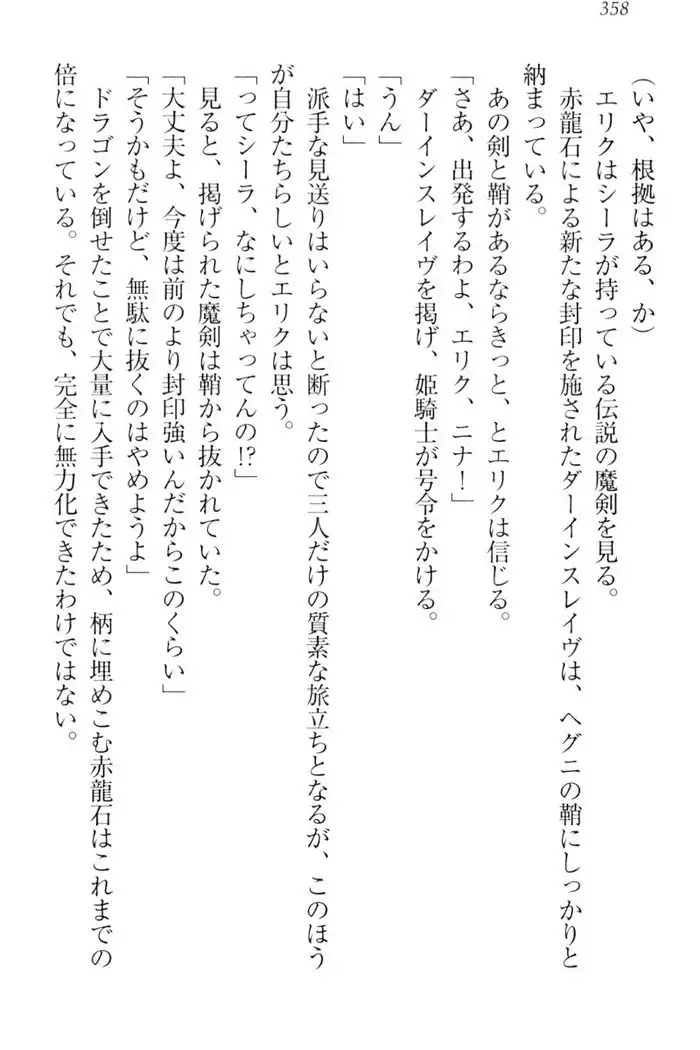 358
(いや、根拠はある、か)
エリクはシーラが持っている伝説の魔剣を見る。
赤龍石による新たな封印を施されたダーインスレイヴは、ヘグニの鞘にしっかりと
納まっている。
あの剣と鞘があるならきっと、とエリクは信じる。
「さあ、出発するわよ、エリク、ニナ!」
ダーインスレイヴを掲げ、姫騎士が号令をかける。
「うん」
「はい」
派手な見送りはいらないと断ったので三人だけの質素な旅立ちとなるが、このほう
が自分たちらしいとエリクは思う。
「ってシーラ、なにしちゃってんの!?」
見ると、掲げられた魔剣は鞘から抜かれていた。
「大丈夫よ、今度は前のより封印強いんだからこのくらい」
「そうかもだけど、無駄に抜くのはやめようよ」
ドラゴンを倒せたことで大量に入手できたため、柄に埋めこむ赤龍石はこれまでの
倍になっている。それでも、完全に無力化できたわけではない。